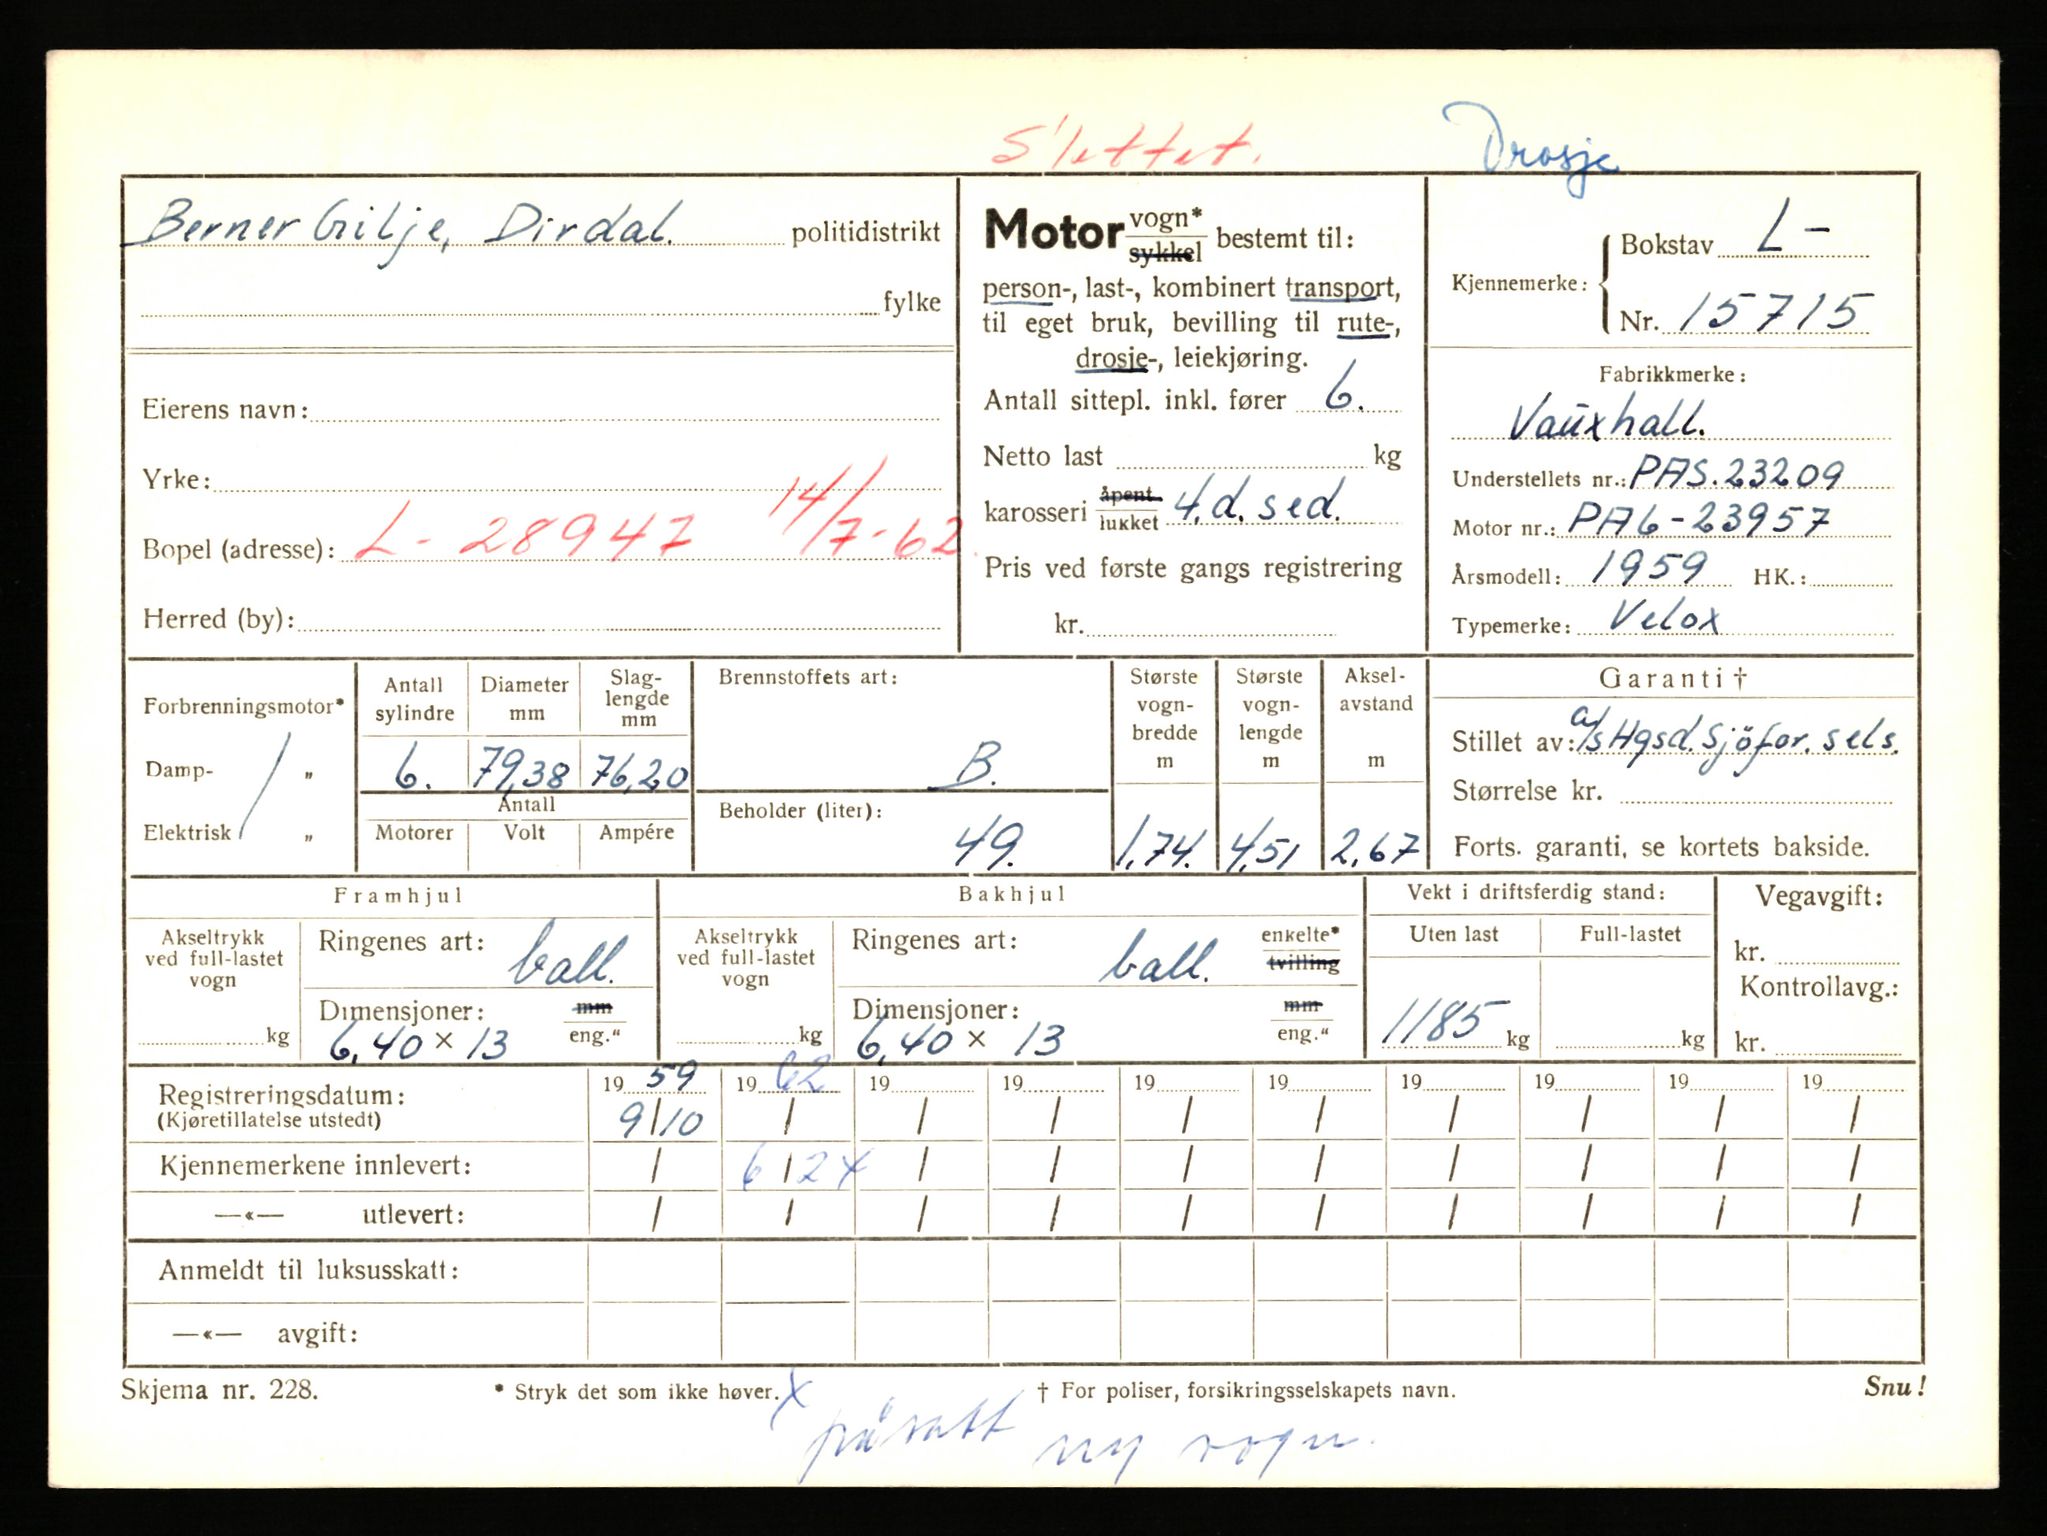 Slettet. Drosje
Berner Gilje, Dirdal. politidistrikt
fylke
Eierens navn:
Yrke:
Bopel (adresse): L- 28947 14/7-62.
Herred (by):
Motor vogn* / sykkel bestemt til:
person-, last-, kombinert transport,
til eget bruk, bevilling til rute-,
drosje-, leiekjøring.
Antall sittepl. inkl. fører 6.
Netto last kg
karosseri åpent / lukket 4.d.sed.
Pris ved første gangs registrering
kr.
Kjennemerke: Bokstav L-
Nr. 15715
Fabrikkmerke:
Vauxhall.
Understellets nr.: PAS.23209
Motor nr.: PA6-23957
Årsmodell: 1959 HK.:
Typemerke: Velox
Forbrenningsmotor*
Damp- „
Elektrisk „
Antall sylindre Diameter mm Slaglengde mm
6. 79,38 76,20
Antall
Motorer Volt Ampére
Brennstoffets art:
B.
Beholder (liter):
49.
Største vognbredde m 1,74.
Største vognlengde m 4,51
Akselavstand m 2,67
Garanti †
Stillet av: a/s Hgsd. Sjöfor. sels.
Størrelse kr.
Forts. garanti, se kortets bakside.
Framhjul
Akseltrykk ved full-lastet vogn kg
Ringenes art: ball.
Dimensjoner: mm / eng."
6,40 × 13
Bakhjul
Akseltrykk ved full-lastet vogn kg
Ringenes art: ball. enkelte* / tvilling
Dimensjoner: mm / eng."
6,40 × 13
Vekt i driftsferdig stand:
Uten last Full-lastet
1185 kg kg
Vegavgift:
kr.
Kontrollavg.:
kr.
Registreringsdatum: 19 59 19 62 19 19 19 19 19 19 19 19
(Kjøretillatelse utstedt) 9/10 / / / / / / / / /
Kjennemerkene innlevert: / 6/2 x / / / / / / / /
—«— utlevert: / / / / / / / / / /
Anmeldt til luksusskatt:
—«— avgift:
Skjema nr. 228. * Stryk det som ikke høver. † For poliser, forsikringsselskapets navn. Snu!
x påsatt ny vogn.